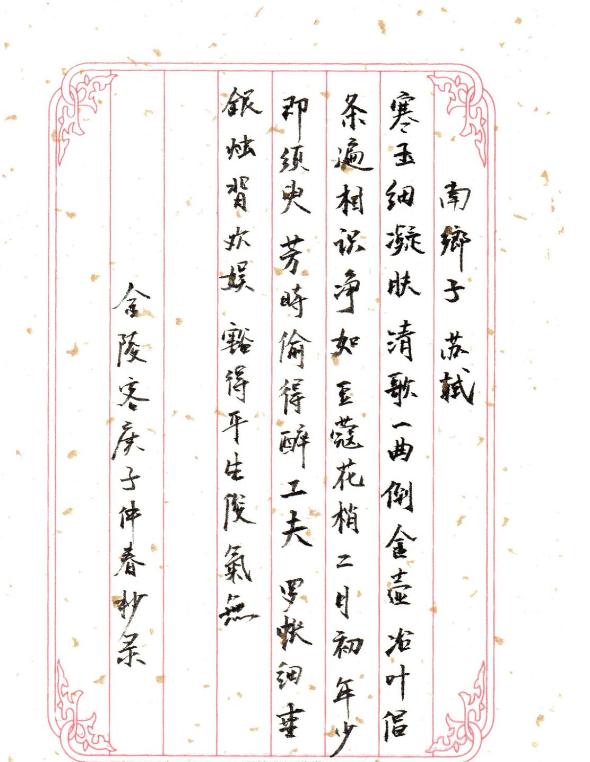 南鄉子 苏軾
寒玉细凝肤清歌一曲倒金壺冶叶倡
条遍相识净如豆蔻花梢二月初年少
即须臾芳時偷得醉工夫罗帐细垂
银烛背欢娱豁得平生俊氣無
金陵客庚子仲春抄录